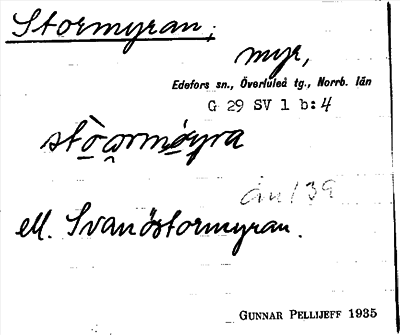 Stormyran,
myr,
Edefors sn., Överluleå tg., Norrb. län
G 29 SV 1 b:4
ell. Svanöstormyran.
GUNNAR PELLIJEFF 1935